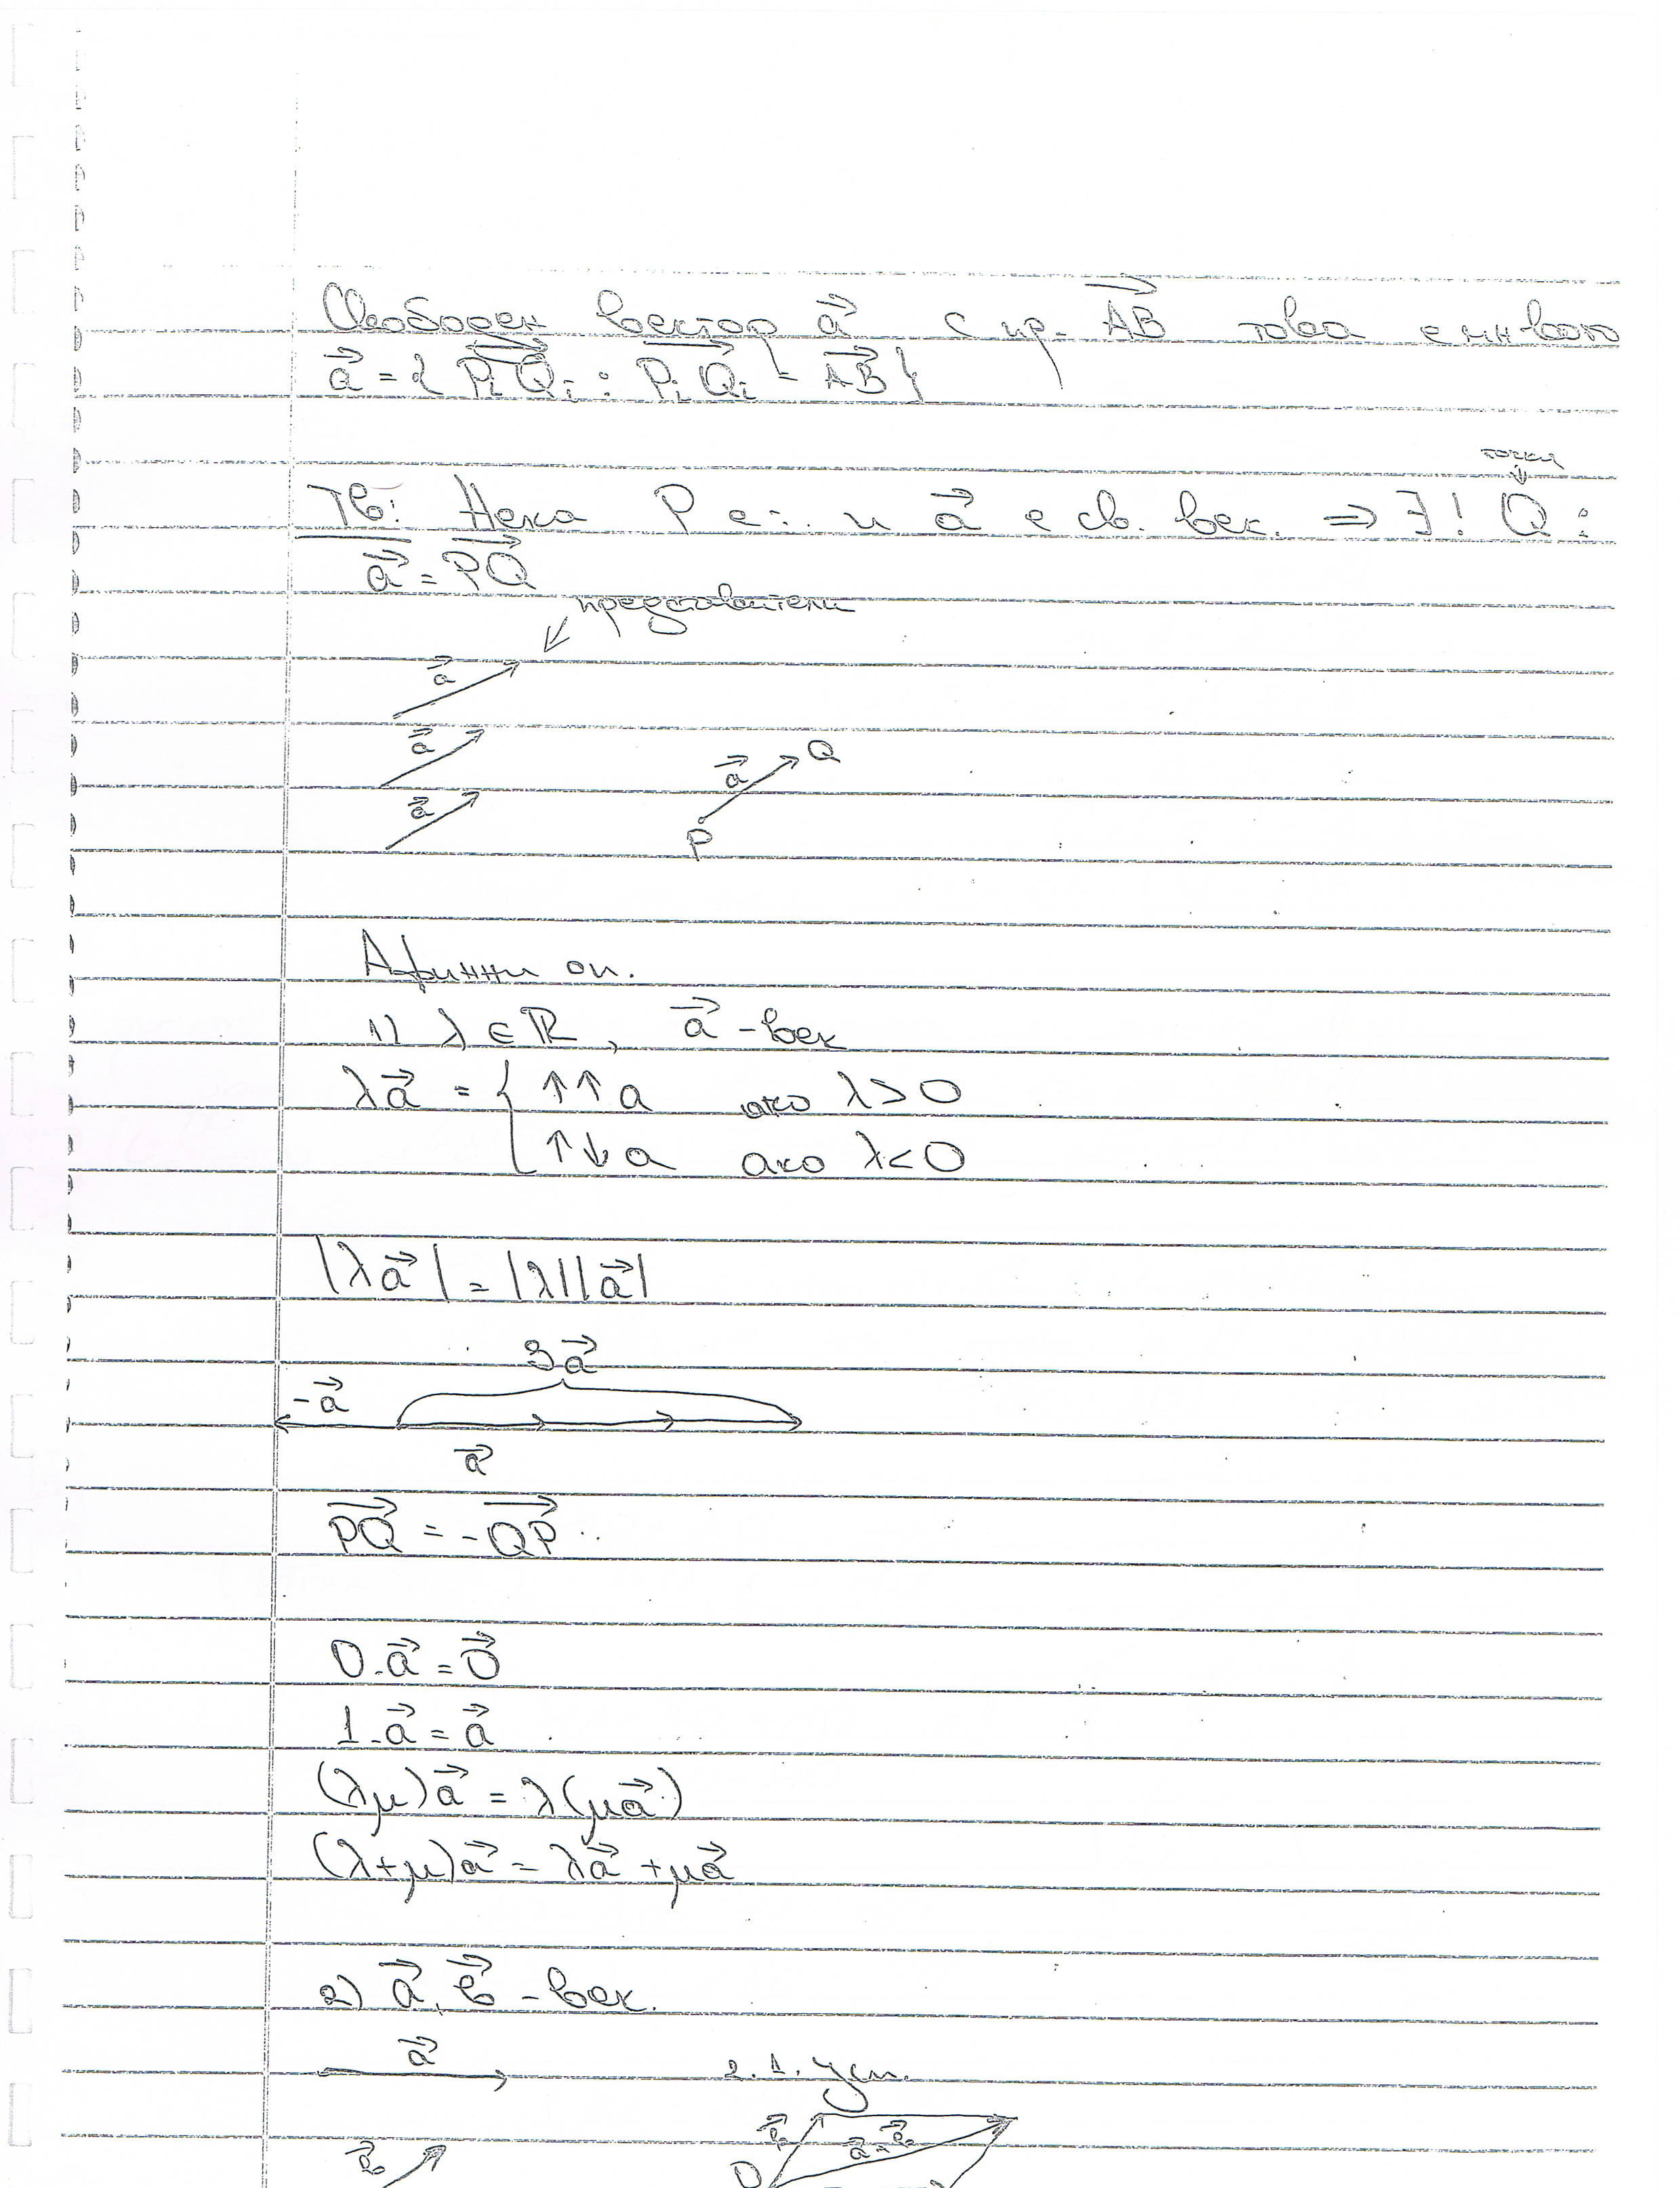 Свободен вектор a⃗ с пр. AB⃗ това е мн-вото
a⃗ = { PᵢQᵢ⃗ : PᵢQᵢ⃗ = AB⃗ }
точка
Тв: Нека P е т. и a⃗ е св. век. ⇒ ∃! Q :
a⃗ = PQ⃗
представители
a⃗
a⃗
a⃗ Q
a⃗
P
Афинни оп.
1) λ ∈ ℝ, a⃗ - век
λa⃗ = { ↑↑ a ако λ > 0
↑↓ a ако λ < 0
|λa⃗| = |λ||a⃗|
3a⃗
-a⃗
a⃗
PQ⃗ = -QP⃗
0.a⃗ = 0⃗
1.a⃗ = a⃗
(λμ)a⃗ = λ(μa⃗)
(λ+μ)a⃗ = λa⃗ + μa⃗
2) a⃗, b⃗ - век.
a⃗
2.1. усп.
b⃗ b⃗
O